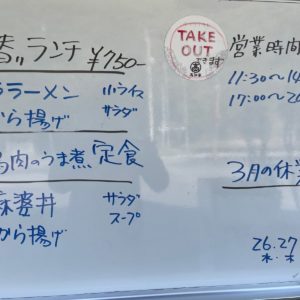 春"ランチ ¥750-
ラーメン 小ライス
から揚げ サラダ
鶏肉のうま煮 定食
麻婆丼 サラダ
から揚げ スープ
TAKE
OUT
できます
営業時間
11:30〜14
17:00〜20
3月の休業
26.27
木・木